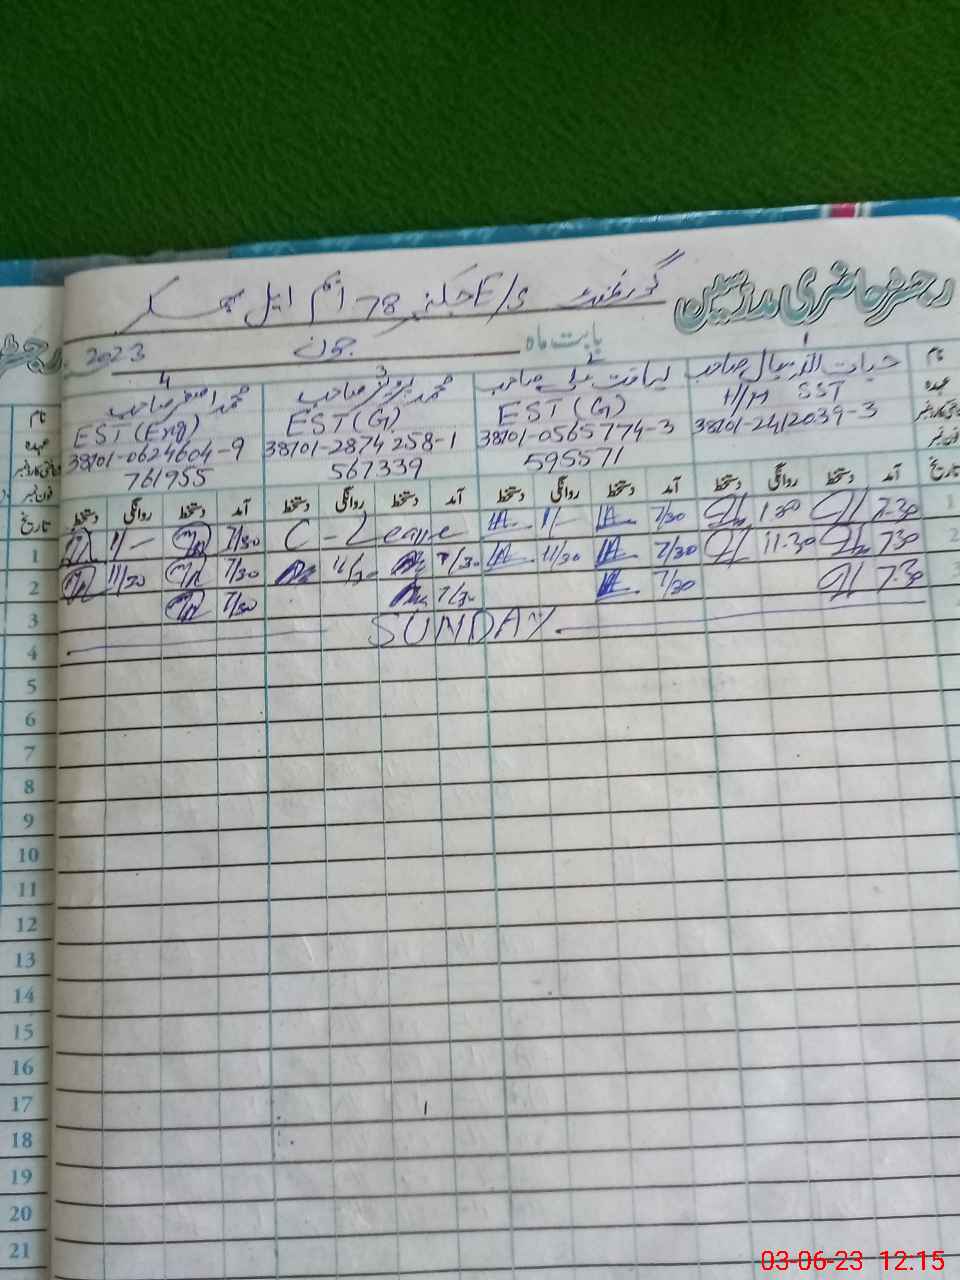 رجسٹر حاضری مدرسین
گورنمنٹ E/S 78 ایم ایل بھکر
بابت ماہ جون 2023
1 2 3 4
نام صاحب صاحب محمد پرویز صاحب محمد اصغر صاحب نام
عہدہ H/M SST EST (G) EST (G) EST (Eng) عہدہ
38101-2412039-3 38101-0565774-3 38101-2874258-1 38101-0624604-9
595571 567339 761955
تاریخ آمد دستخط روانگی دستخط آمد دستخط روانگی دستخط آمد دستخط روانگی دستخط آمد دستخط روانگی دستخط تاریخ
1 7-30 1-30 7/30 1/- C-Leave 7/30 1/- 1
2 7-30 11-30 7/30 11/30 7/30 7/30 11/30 2
3 7-30 7/30 7/30 7/30 3
SUNDAY 4
5
6
7
8
9
10
11
12
13
14
15
16
17
18
19
20
21
03-06-23 12.15